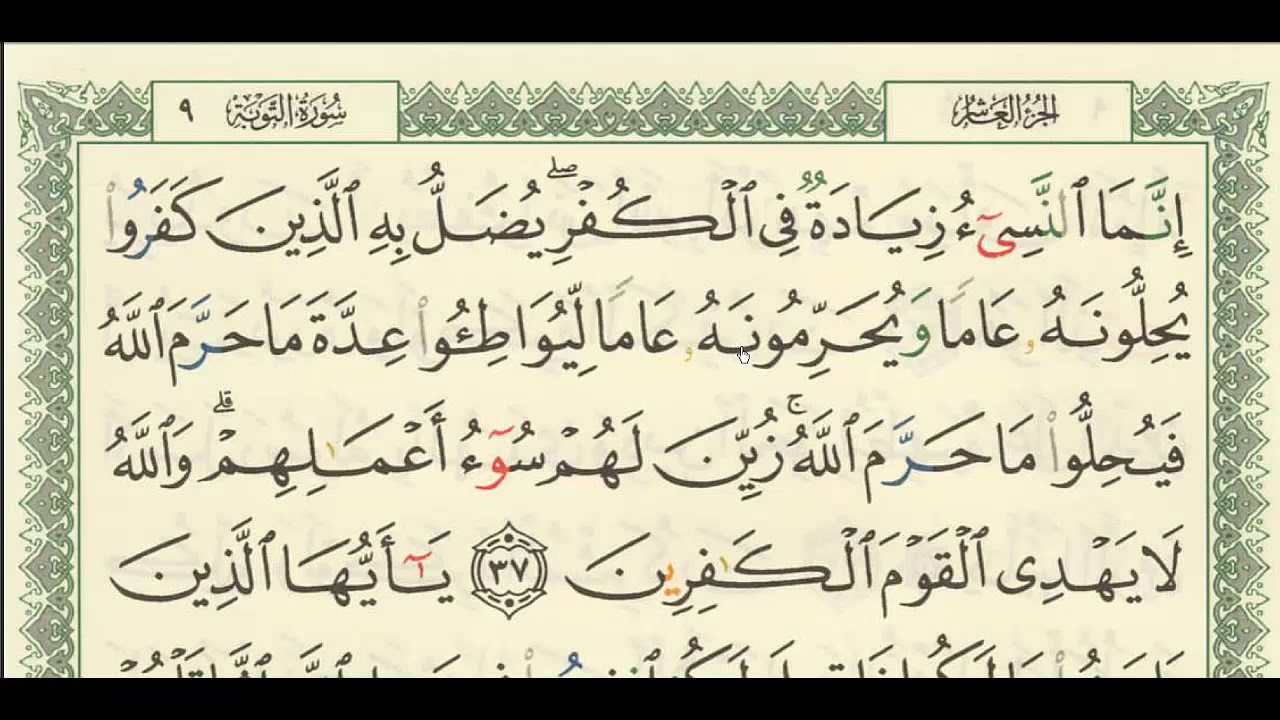 الجزء العاشر
سورة التوبة ٩
إِنَّمَا ٱلنَّسِىٓءُ زِيَادَةٌ فِى ٱلْكُفْرِ ۖ يُضَلُّ بِهِ ٱلَّذِينَ كَفَرُوا۟
يُحِلُّونَهُۥ عَامًا وَيُحَرِّمُونَهُۥ عَامًا لِّيُوَاطِـُٔوا۟ عِدَّةَ مَا حَرَّمَ ٱللَّهُ
فَيُحِلُّوا۟ مَا حَرَّمَ ٱللَّهُ ۚ زُيِّنَ لَهُمْ سُوٓءُ أَعْمَـٰلِهِمْ ۗ وَٱللَّهُ
لَا يَهْدِى ٱلْقَوْمَ ٱلْكَـٰفِرِينَ ٣٧ يَـٰٓأَيُّهَا ٱلَّذِينَ